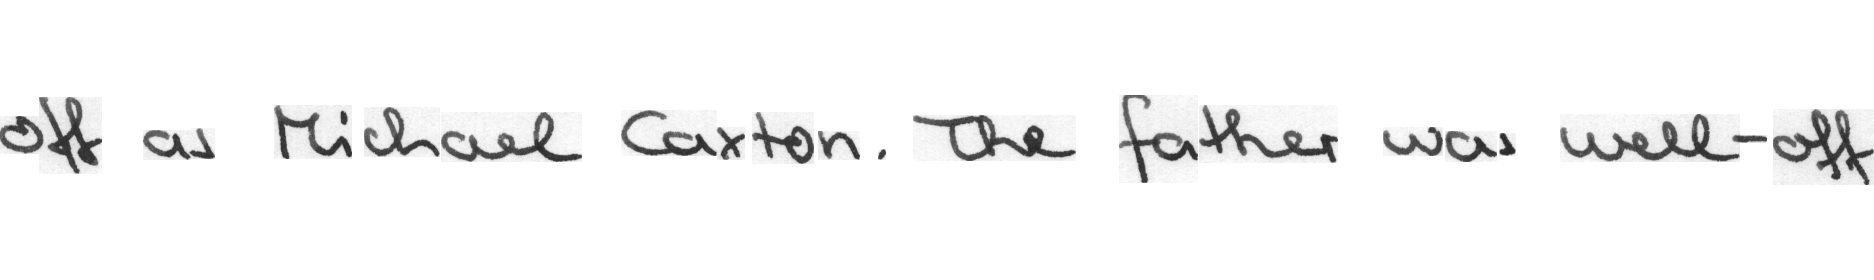 off as Michael Caxton. The father was well-off